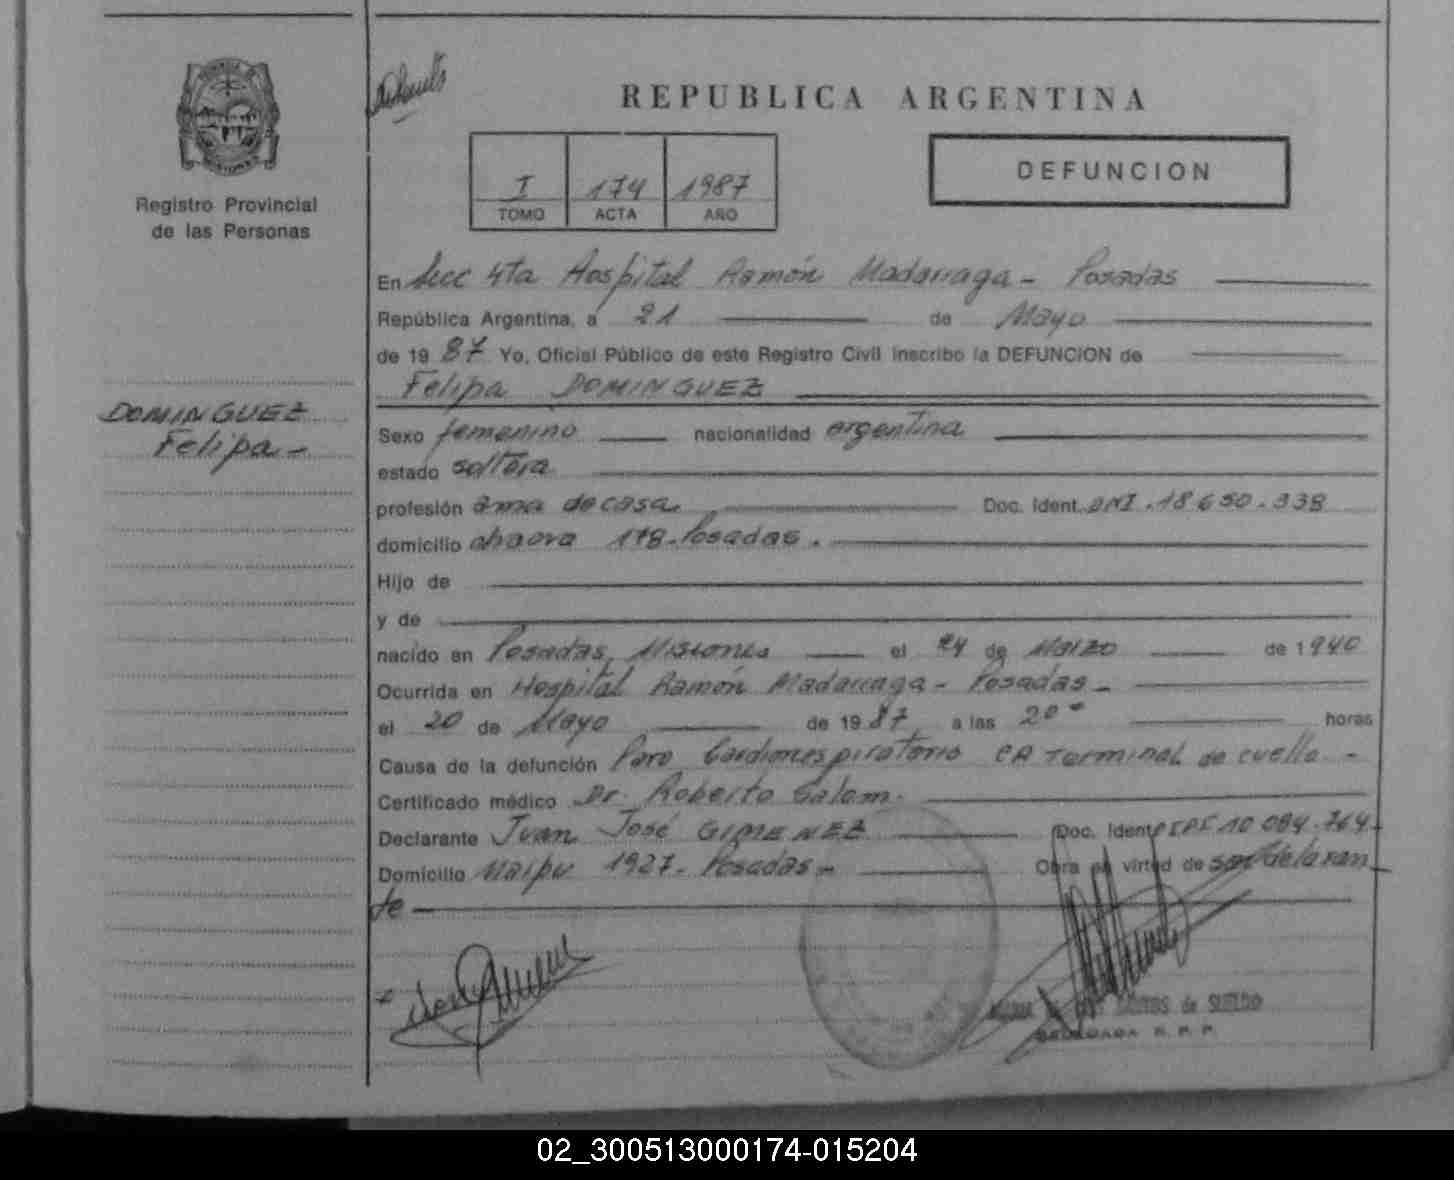 REPUBLICA ARGENTINA
I 174 1987
TOMO ACTA AÑO
DEFUNCION
Registro Provincial
de las Personas
DOMINGUEZ
Felipa -
En Secc 4ta Hospital Ramón Madariaga - Posadas
República Argentina, a 21 de Mayo
de 19 87 Yo, Oficial Público de este Registro Civil inscribo la DEFUNCION de
Felipa DOMINGUEZ
Sexo femenino nacionalidad argentina
estado soltera
profesión ama de casa Doc. Ident. DNI. 18.650.338
domicilio chacra 178 - Posadas.
Hijo de
y de
nacido en Posadas, Misiones el 24 de Marzo de 1940
Ocurrida en Hospital Ramón Madariaga - Posadas -
el 20 de Mayo de 19 87 a las 20 horas
Causa de la defunción Paro Cardiorespiratorio CA Terminal de cuello -
Certificado médico Dr. Roberto Galom.
Declarante Juan José GIMENEZ Doc. Ident. 10.084.764
Domicilio Maipu 1927 - Posadas - Obra en virtud de ser declaran
te
de SUELDO
DELEGADA R. P. P.
02_300513000174-015204